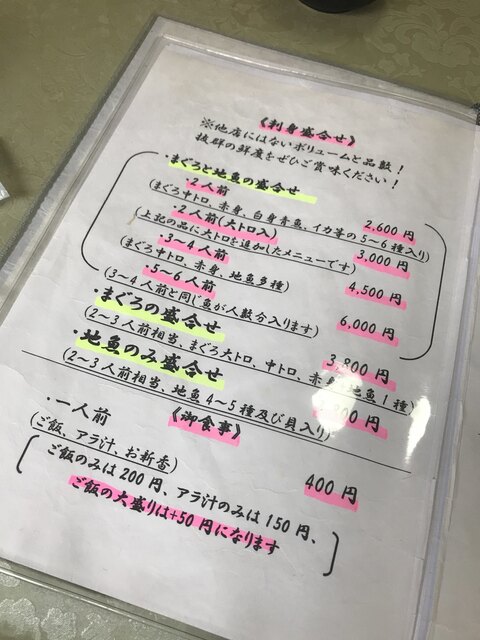 《刺身盛合せ》
※他店にはないボリュームと品数!
抜群の鮮度をぜひご賞味ください!
・まぐろと地魚の盛合せ
・2人前 2,600円
(まぐろ中トロ、赤身、白身青魚、イカ等の5~6種入り)
・2人前(大トロ入) 3,000円
(上記の品に大トロを追加したメニューです)
・3~4人前 4,500円
(まぐろ中トロ、赤身、地魚多種)
・5~6人前 6,000円
(3~4人前と同じ魚が人数分入ります)
・まぐろの盛合せ 3,800円
(2~3人前相当、まぐろ大トロ、中トロ、赤身、地魚1種)
・地魚のみ盛合せ 00円
(2~3人前相当、地魚4~5種及び貝入り)
《御食事》
・一人前 400円
(ご飯、アラ汁、お新香)
ご飯のみは200円、アラ汁のみは150円、
ご飯の大盛りは+50円になります